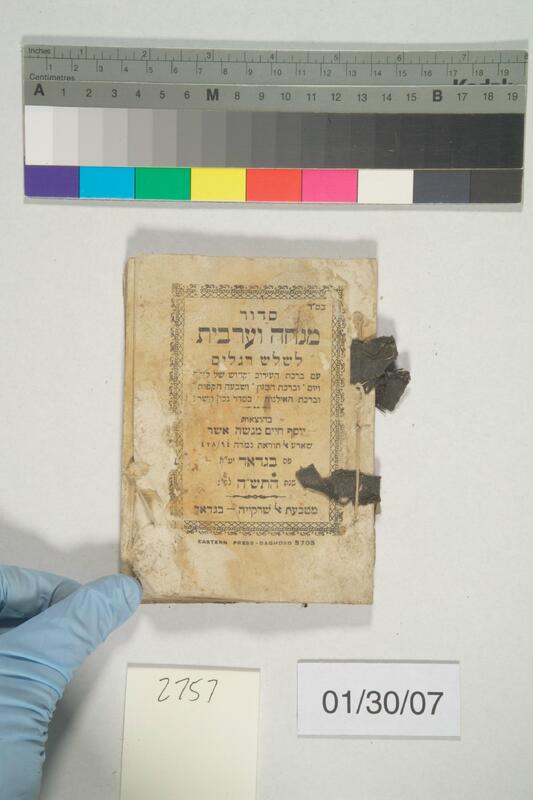 Inches 1 2 3 4 5 6 7 8
Centimetres 1 2 3 4 5 6 7 8 9 10 11 12 13 14 15 16 17 18 19
A 1 2 3 4 5 6 M 8 9 10 11 12 13 14 15 B 17 18 19
בס"ד
סדור
מנחה וערבית
לשלש רגלים
עם ברכת העירוב וקדוש של לילה
ויום וברכת המזון ושבעה הקפות
וברכת האילנות בסדר נכון וישר
בהוצאות
יוסף חיים מנשה אשר
שארע
פה בגדאד יע"א
שנת התש"ה לפ"ג
מטבעת אל שרקייה — בגדאד
EASTERN PRESS-BAGHDAD 5705
2757
01/30/07